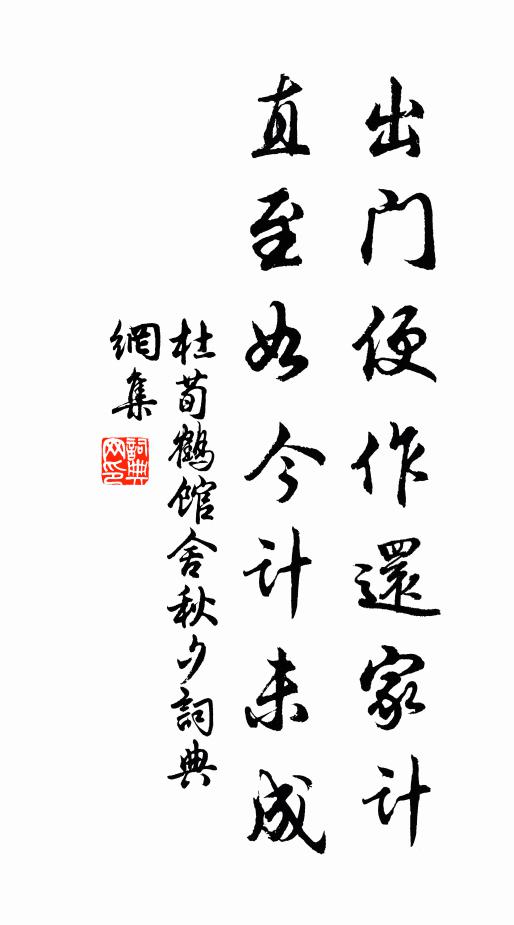 出门便作還家计
直至如今计未成
杜荀鶴馆舍秋夕詞典
網集
詞典
网印